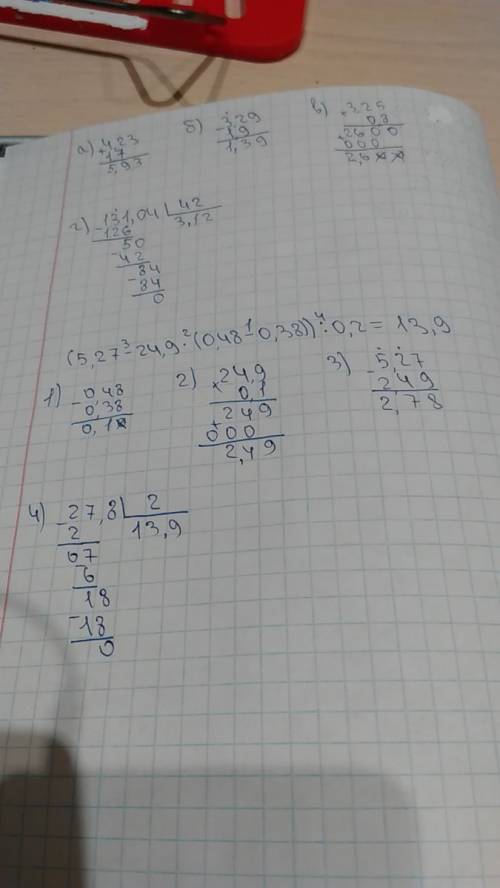 а) 4,23
+ 1,7
5,93
б) 3,29
- 1,9
1,39
в) 3,25
× 0,8
2600
+ 000
2,600
г) - 131,04 | 42
126 | 3,12
50
- 42
84
- 84
0
(5,27 - 24,9 · (0,48 - 0,38)) : 0,2 = 13,9
3 2 1 4
1) - 0,48
0,38
0,10
2) × 24,9
0,1
+ 249
000
2,49
3) - 5,27
2,49
2,78
4) - 27,8 | 2
2 | 13,9
67
6
18
- 18
0